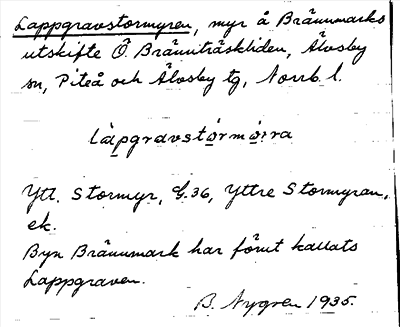 Lappgravstormyren, myr å Brännmarks
utskifte Ö. Bränniträskliden, Älvsby
sn, Piteå och Älvsby tg, Norrb. l.
Yttl. Stormyr, G.36, Yttre Stormyran,
ek.
Byn Brännmark har förut kallats
Lappgraven.
B. Nygren 1935.